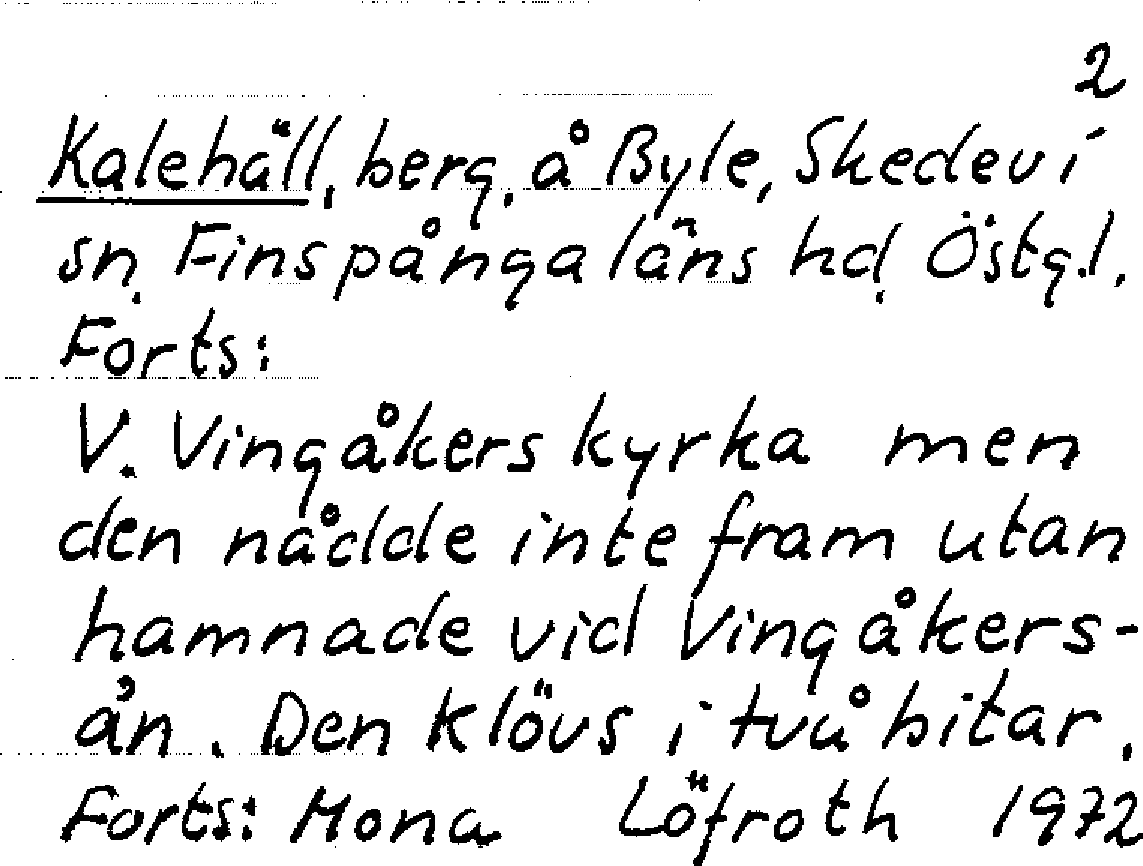 2
Kalehäll, berg, å Byle, Skedevi
sn, Finspånga läns hd, Östg.l.
Forts:
V. Vingåkers kyrka men
den nådde inte fram utan
hamnade vid Vingåkers-
ån. Den klövs i två bitar.
Forts: Mona Löfroth 1972